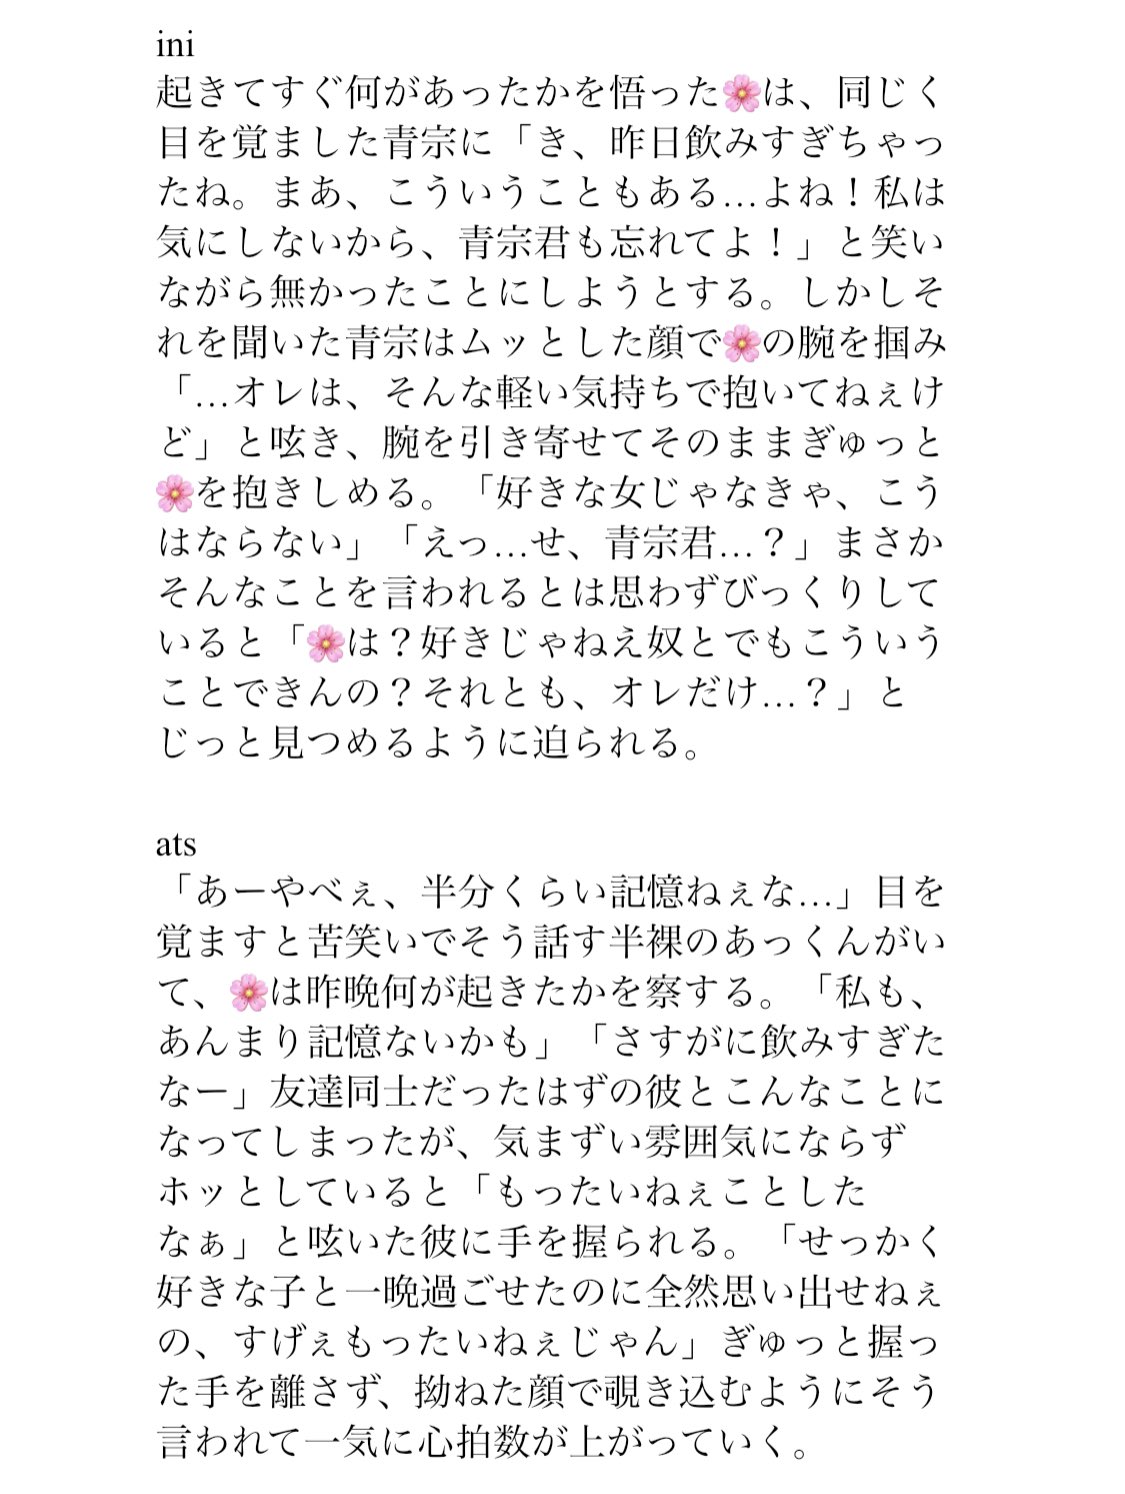 ini
起きてすぐ何があったかを悟った🌸は、同じく
目を覚ました青宗に「き、昨日飲みすぎちゃっ
たね。まあ、こういうこともある…よね！私は
気にしないから、青宗君も忘れてよ！」と笑い
ながら無かったことにしようとする。しかしそ
れを聞いた青宗はムッとした顔で🌸の腕を掴み
「…オレは、そんな軽い気持ちで抱いてねぇけ
ど」と呟き、腕を引き寄せてそのままぎゅっと
🌸を抱きしめる。「好きな女じゃなきゃ、こう
はならない」「えっ…せ、青宗君…？」まさか
そんなことを言われるとは思わずびっくりして
いると「🌸は？好きじゃねえ奴とでもこういう
ことできんの？それとも、オレだけ…？」と
じっと見つめるように迫られる。
ats
「あーやべぇ、半分くらい記憶ねぇな…」目を
覚ますと苦笑いでそう話す半裸のあっくんがい
て、🌸は昨晩何が起きたかを察する。「私も、
あんまり記憶ないかも」「さすがに飲みすぎた
なー」友達同士だったはずの彼とこんなことに
なってしまったが、気まずい雰囲気にならず
ホッとしていると「もったいねぇことした
なぁ」と呟いた彼に手を握られる。「せっかく
好きな子と一晩過ごせたのに全然思い出せねぇ
の、すげぇもったいねぇじゃん」ぎゅっと握っ
た手を離さず、拗ねた顔で覗き込むようにそう
言われて一気に心拍数が上がっていく。